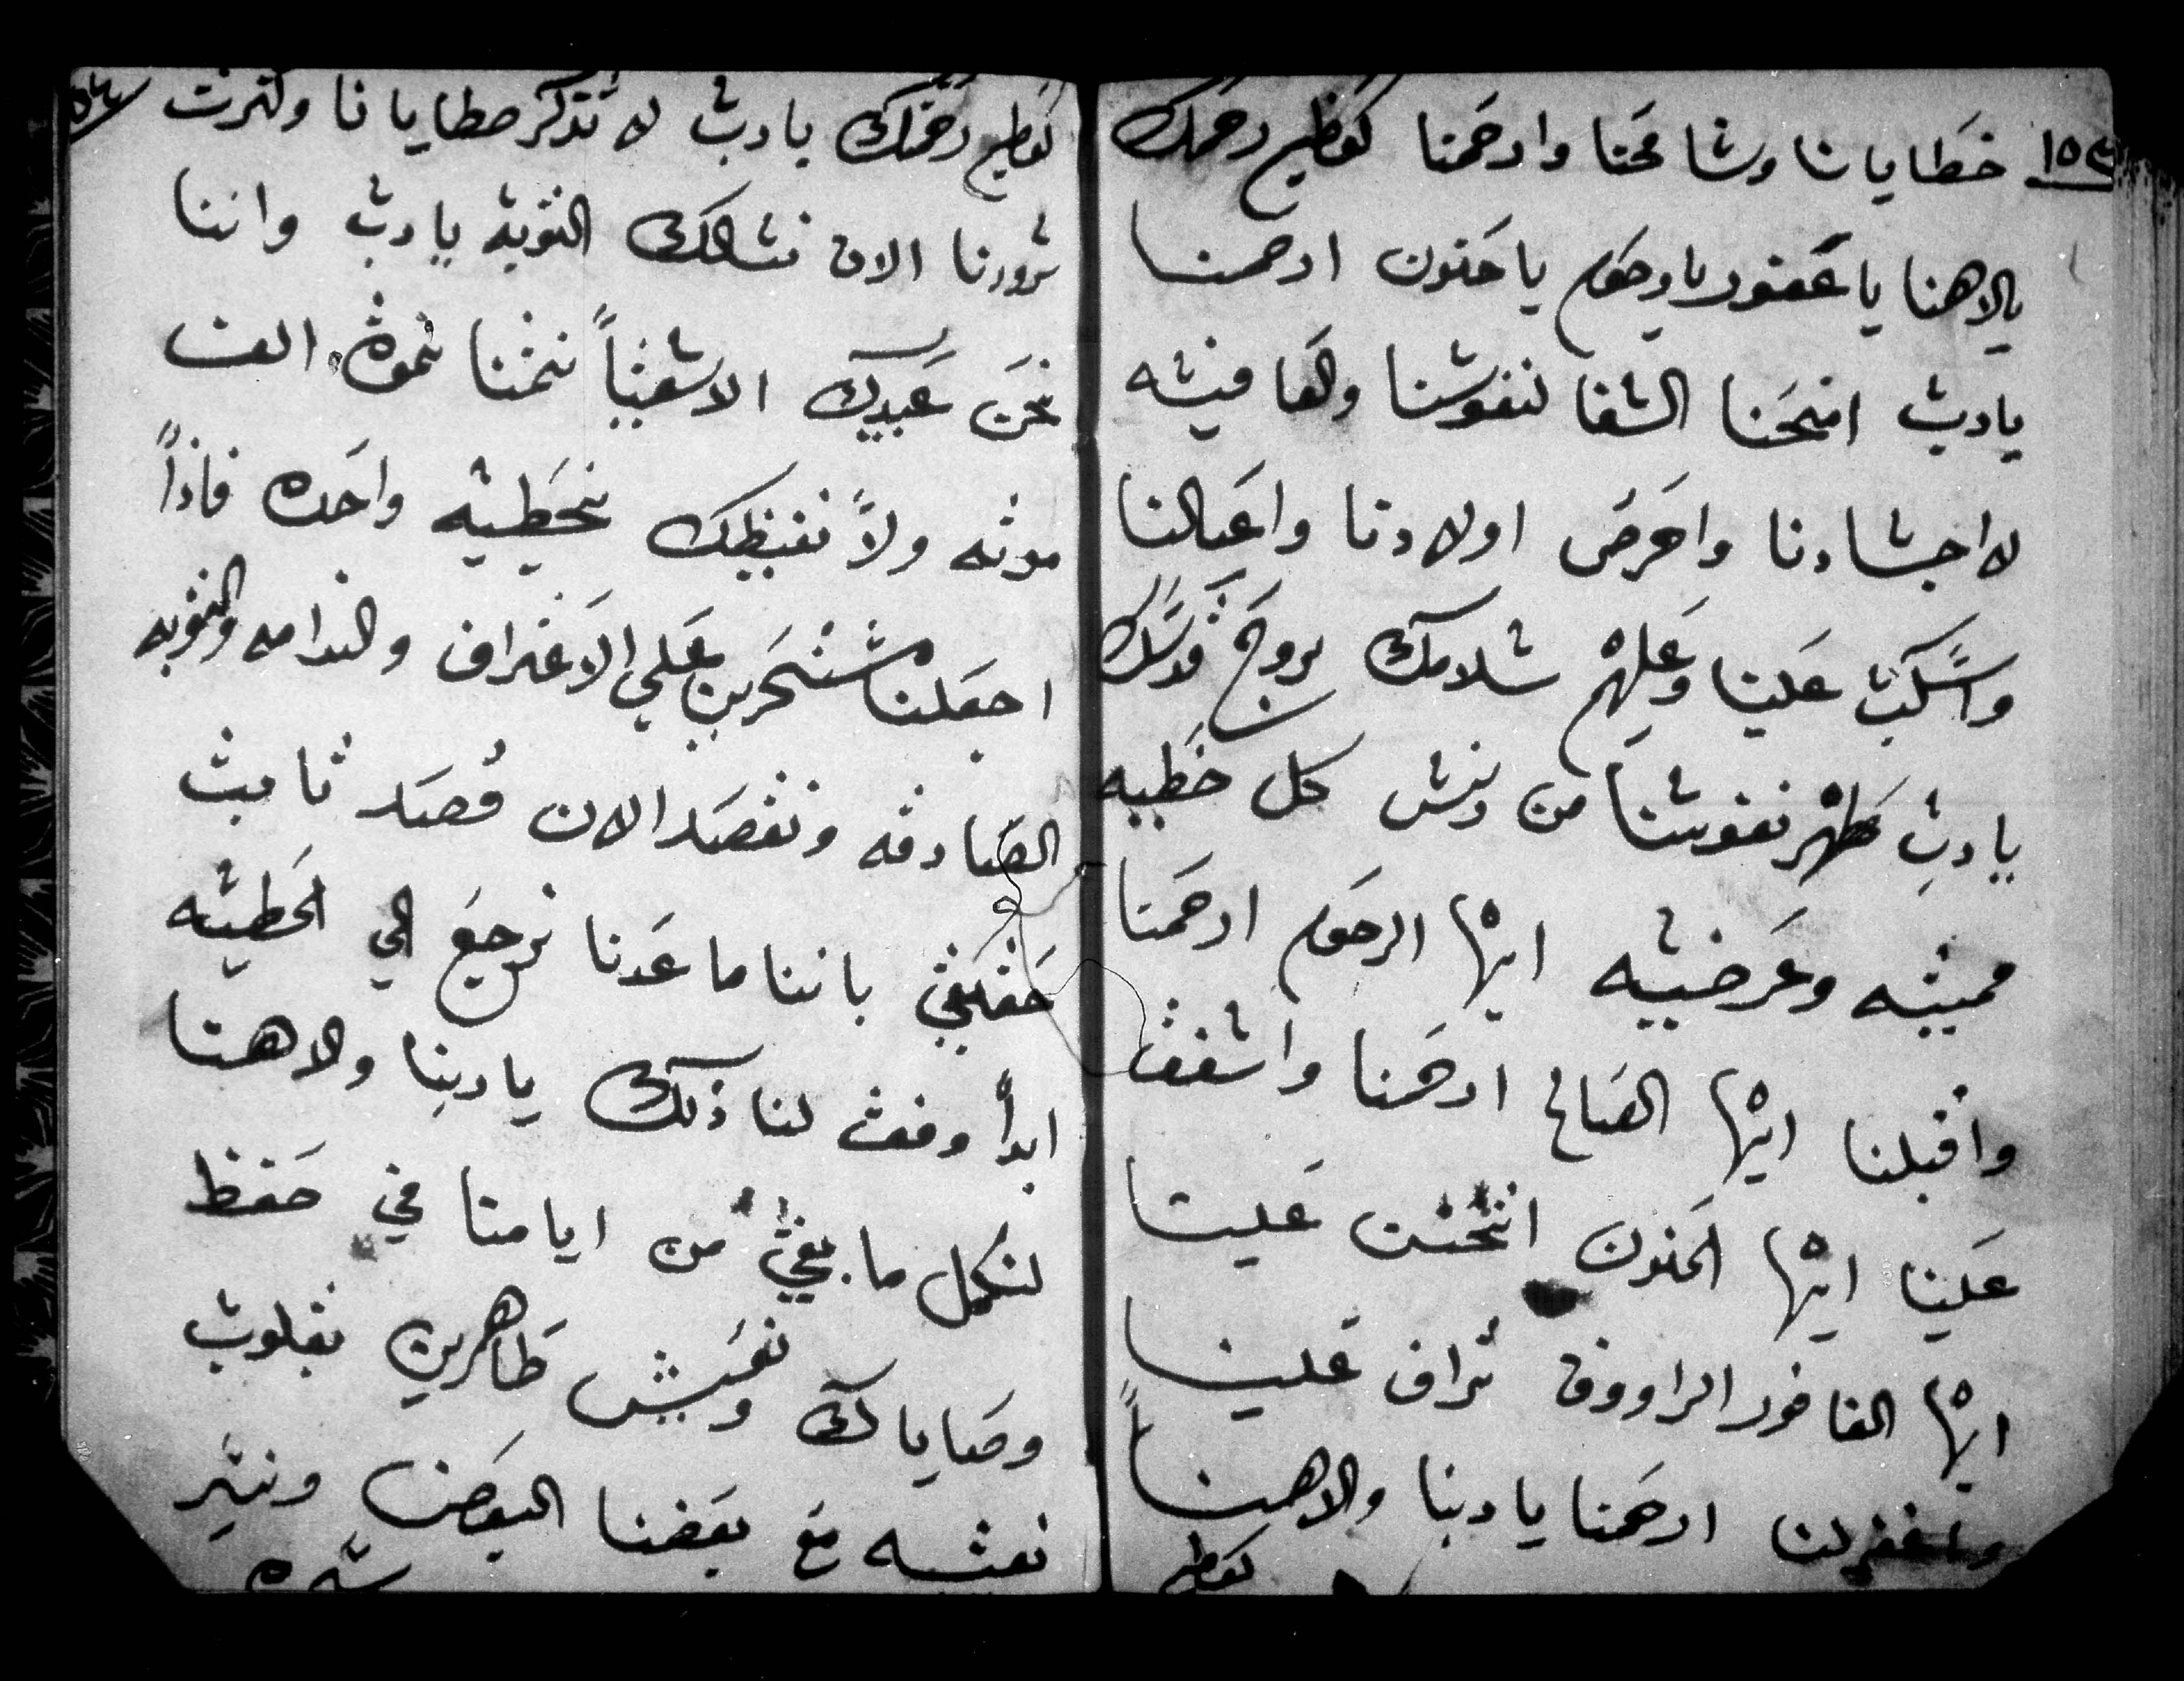 خطايانا وشامحنا وارحمنا كعظيم رحمتك
يالاهنا يا غفور يا رحوم يا حنون ارحمنا
يارب امنحنا الشفا لنفوشنا والعافيه
لاجشادنا واحرص اولادنا واعيالنا
واسكب علينا وعليهم شلامك بروح قدسك
يارب طهر نفوشنا من دنش كل خطيه
مميته وعرضيه ايها الرحوم ارحمنا
واقبلنا ايها الصالح ارحمنا واشفق
علينا ايها الحنون اتحنن علينا
ايها الغافور الراووف تراف علينا
واغفر لنا ارحمنا ياربنا والاهنا
كعظيم
كعظيم رحمتك يارب لا تذكر خطايانا وكثرت
شرورنا الان نشالك التوبه يارب واننا
نحن عبيدك الاشقياً نتمنا نموت الف
موته ولاً نغيظك بخطيه واحده فاذاً
اجعلنا مشتمرين علي الاعتراف والندامه والتوبه
الصادقه ونقصد الان قصد ثابت
حقيقي باننا ما عدنا نرجع الي الخطيه
ابداً وفق لنا ذلك ياربنا والاهنا
لنكمل ما بقي من ايامنا في حفظ
وصاياك ونعيش طاهرين بقلوب
نقيه مع بعضنا البعض ونسير
سيره